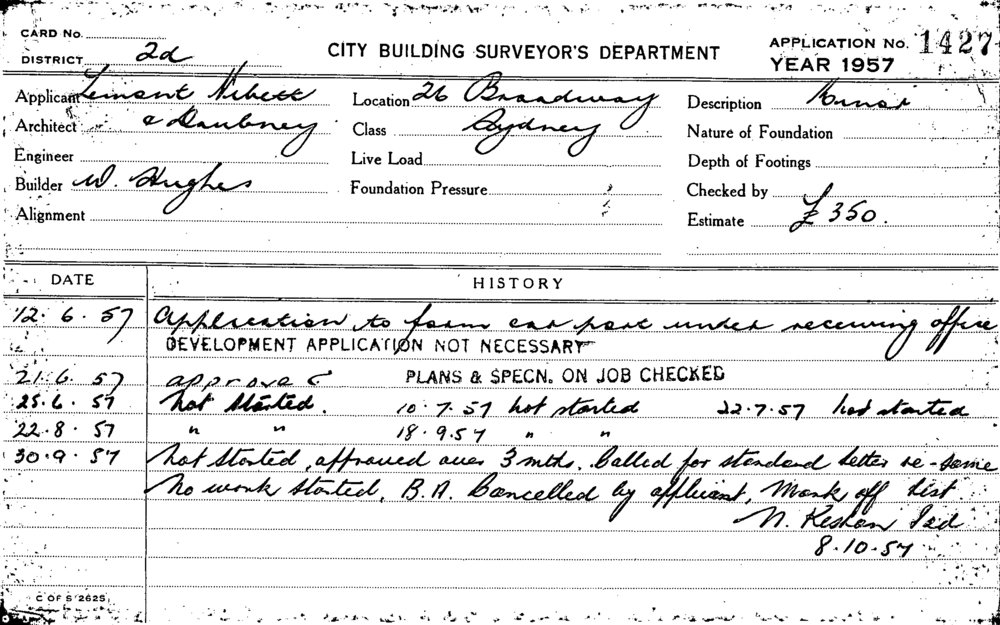 CARD No.
DISTRICT 2d
CITY BUILDING SURVEYOR'S DEPARTMENT
APPLICATION No. 1427
YEAR 1957
Applicant
Location 26 Broadway
Description Minor
Architect & Daubney
Class Sydney
Nature of Foundation
Engineer
Live Load
Depth of Footings
Builder W. Hughes
Foundation Pressure
Checked by
Alignment
Estimate £350.
DATE
HISTORY
12.6.57 Application to form car park under receiving office
DEVELOPMENT APPLICATION NOT NECESSARY
21.6.57 approved PLANS & SPECN. ON JOB CHECKED
25.6.57 not started. 10.7.57 not started 22.7.57 not started
22.8.57 " " 18.9.57 " "
30.9.57 Not started, approved over 3 mths. Called for standard letter re-same
No work started, B.A. Cancelled by applicant, Mark off list
8.10.57
C OF S 2625